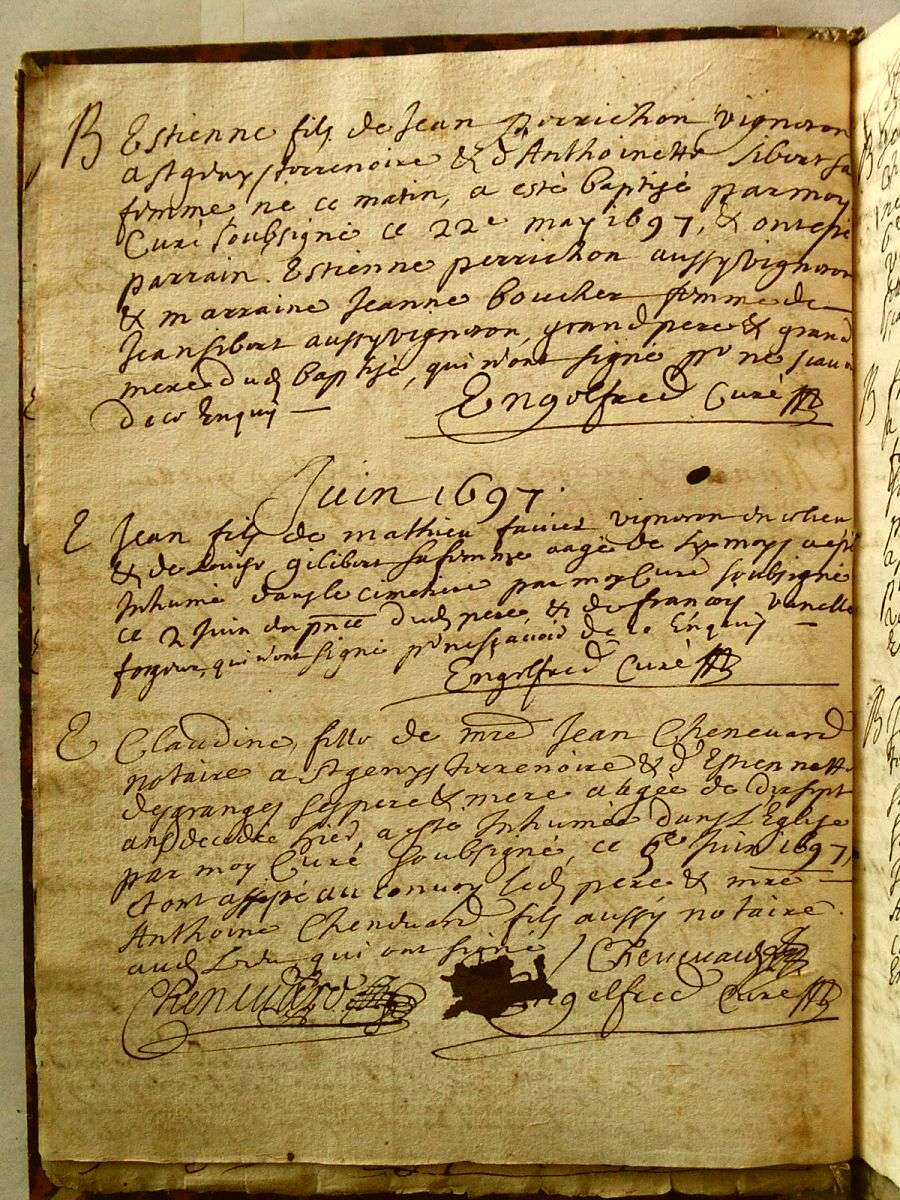 B Estienne fils de Jean perrichon vigneron
a St genys terrenoire & d'Anthoinette sibert sa
femme, ne ce matin, a esté baptisé par moy
Curé soubsigné ce 22e may 1697, & ont esté
parrain Estienne perrichon aussy vigneron
& marraine Jeanne boucher femme de
Jean sibert aussy vigneron, grand pere & grand
mere dud baptisé, qui n'ont signé pr ne scavoir
de ce Enquis
Engolfred Curé
Juin 1697.
E Jean fils de mathieu favier vigneron en ce lieu
& de Louise gilibert sa femme aagé de six moys a esté
Inhumé dans le cimetiere par moy Curé soubsigné
ce 2 Juin en pnce dud pere, & de françois
forgeur, qui n'ont signé pr ne scavoir de ce Enquis
Engolfred Curé
E Claudine, fille de mre Jean Chenevard
notaire a St genys terrenoire & d'Estiennette
desgranges ses pere & mere aagée de dixsept
ans decedée hier, a esté Inhumée dans L'Eglise
par moy Curé soubsigné, ce Juin 1697,
& ont assisté au convoy led pere & mre
Anthoine Chenevard fils aussy notaire
aud Lieu qui ont signé Chenevard
Chenevard Engelfred Curé